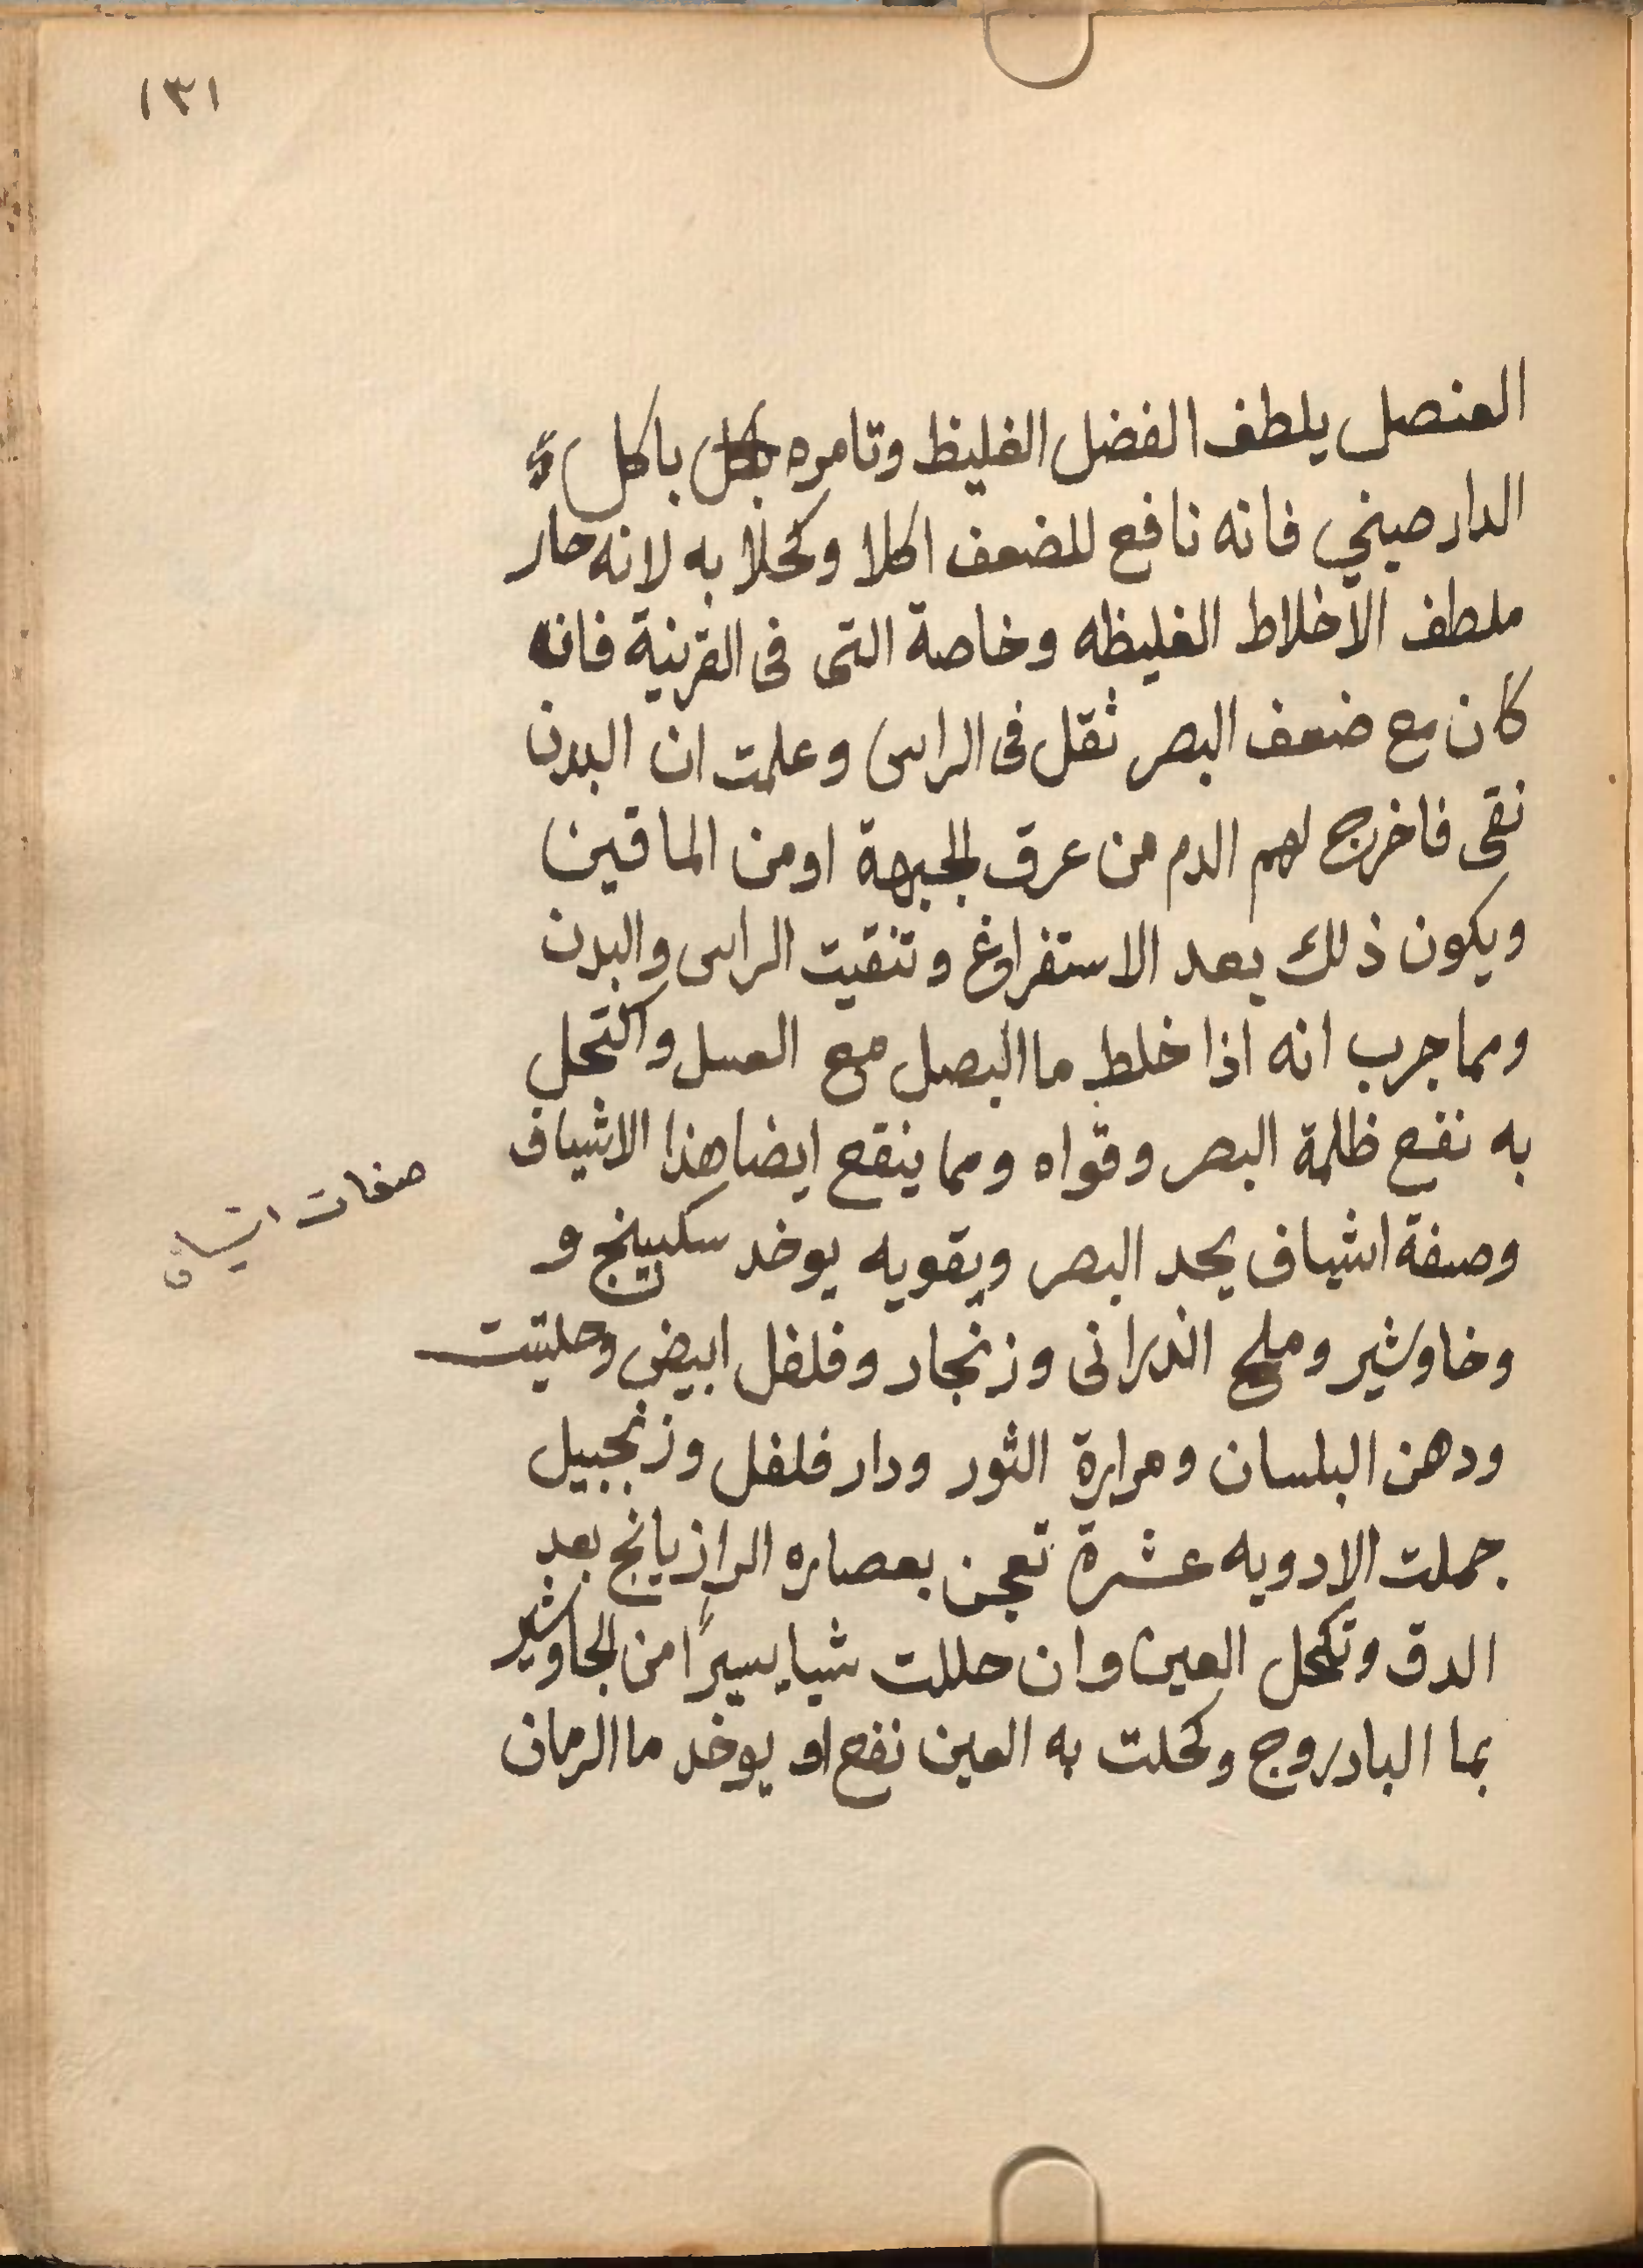 ١٣١
العنصل يلطف الفضل الغليظ وتامره باكل
الدار صيني فانه نافع للضعف اكلا وكحلا به لانه حار
ملطف الاخلاط الغليظه وخاصة التى فى القرنية فانه
كان مع ضعف البصر ثقل فى الراس وعلمت ان البدن
نقى فاخرج لهم الدم من عرق الجبهة او من الماقين
ويكون ذلك بعد الاستفراغ وتنقيت الراس والبدن
ومما جرب انه اذا خلط ما البصل مع العسل واكتحل
به نفع ظلمة البصر وقواه ومما ينفع ايضا هذا الاشياف
صفات اشياف
وصفة اشياف يحد البصر ويقويه يوخد سكبينج و
وخاوشير وملح اندرانى وزنجار وفلفل ابيض وحلتيت
ودهن البلسان ومرارة الثور ودار فلفل وزنجبيل
جملت الادويه عشرة تعجن بعصاره الرازيانج بعد
الدق وتكحل العين وان حللت شيا يسيرًا من الجاوشير
بما البادروج وكحلت به العين نفع او يوخد ما الرمان